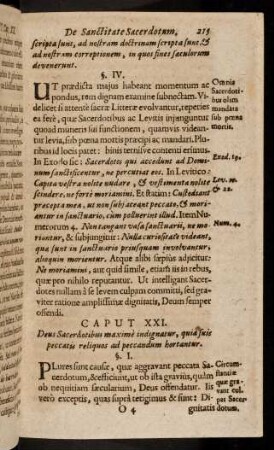 De Sanctitate Sacerdotum, 215
scripta sunt, ad nostram doctrinam scripta sunt, &
ad nostram correptionem, in quos fines sæculorum
devenerunt.
§. IV.
UT prædicta majus habeant momentum ac
pondus, rem dignam examine subnectam. Vi-
delicet si attentè sacræ Litteræ evolvantur, reperies
es ferè, quæ Sacerdotibus ac Levitis injunguntur
quoad muneris sui functionem, quamvis videan-
tur levia, sub pœna mortis præcipi ac mandari. Plu-
ribus id locis patet: binis testivè concessum
In Exodo sic: Sacerdotes qui accedunt ad Domi-
num sanctificentur, ne percutiat eos. In Levitico:
Capita vestra nolite nudare, & vestimenta nolite
scindere, ne fortè moriamini. Et statim: Custodiant
precepta mea, ut non subjaceant peccato, & mori-
antur in sanctuario, cùm polluerint illud. Item Nu-
merorum 4. Non tangant vasa sanctuarii, ne mo-
riantur, & subjungitur: Nulla curiositate videant,
quæ sunt in sanctuario priusquam involvantur,
alioquin morientur. Atque alibi sæpiùs adjicitur:
Ne moriamini, aut quid simile, etiam iis in rebus,
quæ pro nihilo reputantur. Ut intelligant Sacer-
dotes nullam à se levem culpam committi, sed gravi-
ter ratione amplissimæ dignitatis, Deum semper
offendi.
Omnia
Sacerdoti-
bus olim
mandata
sub pœna
mortis.
Exod. 19.
Lev. 10.
& 22.
Num. 4.
CAPUT XXI.
Deus Sacerdotibus maximè indignatur, quòd suis
peccatis reliquos ad peccandum hortantur.
§. I.
PLures sunt causæ, quæ aggravant peccata Sa-
cerdotum, & efficiunt, ut ob ista graviùs, quàm
ob nequitiam sæcularium, Deus offendatur. Iis
verò exceptis, quas suprà tetigimus & sunt: Di-
Circum-
stantiæ
quæ gra-
vant cul-
pas Sacer-
dotum.
O 4 gnitatis